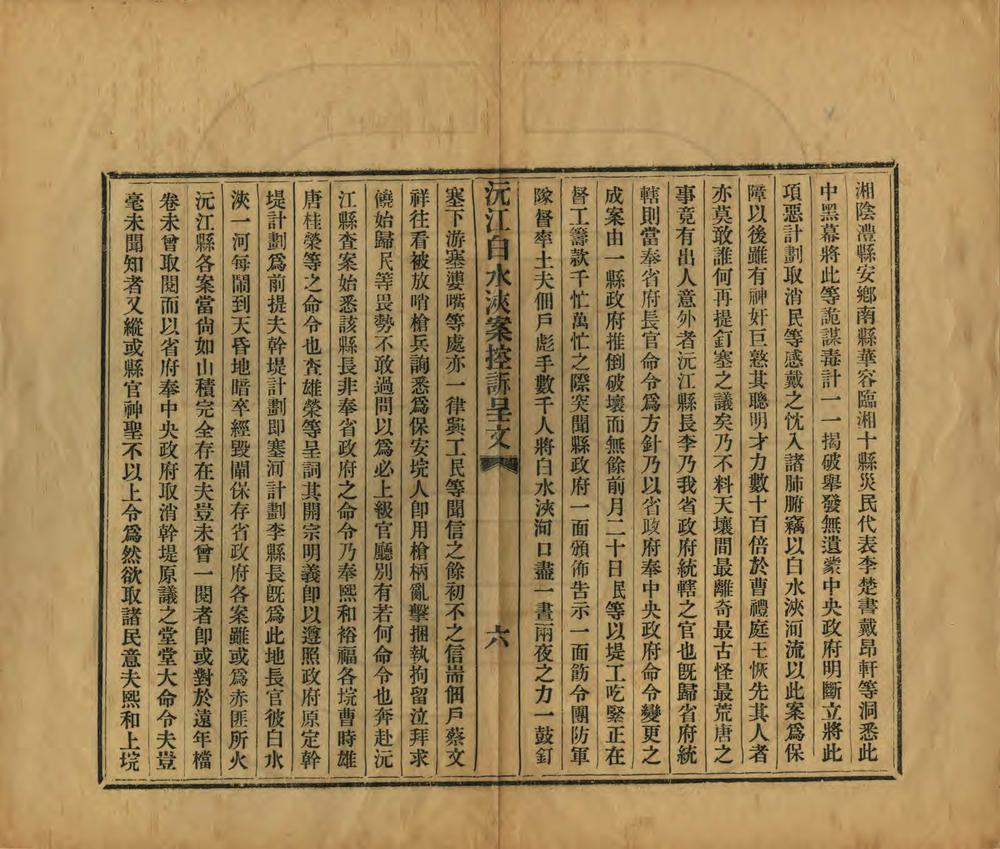 湘陰澧縣安鄉南縣華容臨湘十縣災民代表李楚書戴昂軒等洞悉此
中黑幕將此等詭謀毒計一一揭破舉發無遺蒙中央政府明斷立將此
項惡計劃取消民等感戴之忱入諸肺腑竊以白水浹河流以此案爲保
障以後雖有神奸巨憝其聰明才力數十百倍於曹禮庭王恢先其人者
亦莫敢誰何再提釘塞之議矣乃不料天壤間最離奇最古怪最荒唐之
事竟有出人意外者沅江縣長李乃我省政府統轄之官也旣歸省府統
轄則當奉省府長官命令爲方針乃以省政府奉中央政府命令變更之
成案由一縣政府推倒破壞而無餘前月二十日民等以堤工吃緊正在
督工籌款千忙萬忙之際突聞縣政府一面頒佈告示一面飭令團防軍
隊督率土夫佃戶彪手數千人將白水浹河口盡一晝兩夜之力一鼓釘
沅江白水浹案控訴呈文 六
塞下游塞婆嘴等處亦一律興工民等聞信之餘初不之信耑佃戶蔡文
祥往看被放哨槍兵詢悉爲保安垸人卽用槍柄亂擊捆執拘留泣拜求
饒始歸民等畏勢不敢過問以爲必上級官廳別有若何命令也奔赴沅
江縣查案始悉該縣長非奉省政府之命令乃奉熙和裕福各垸曹時雄
唐桂榮等之命令也查雄榮等呈詞其開宗明義卽以遵照政府原定幹
堤計劃爲前提夫幹堤計劃卽塞河計劃李縣長旣爲此地長官彼白水
浹一河每鬧到天昏地暗卒經毀閘保存省政府各案雖或爲赤匪所火
沅江縣各案當尙如山積完全存在夫豈未曾一閱者卽或對於遠年檔
卷未曾取閱而以省府奉中央政府取消幹堤原議之堂堂大命令夫豈
毫未聞知者又縱或縣官神聖不以上令爲然欲取諸民意夫熙和上垸